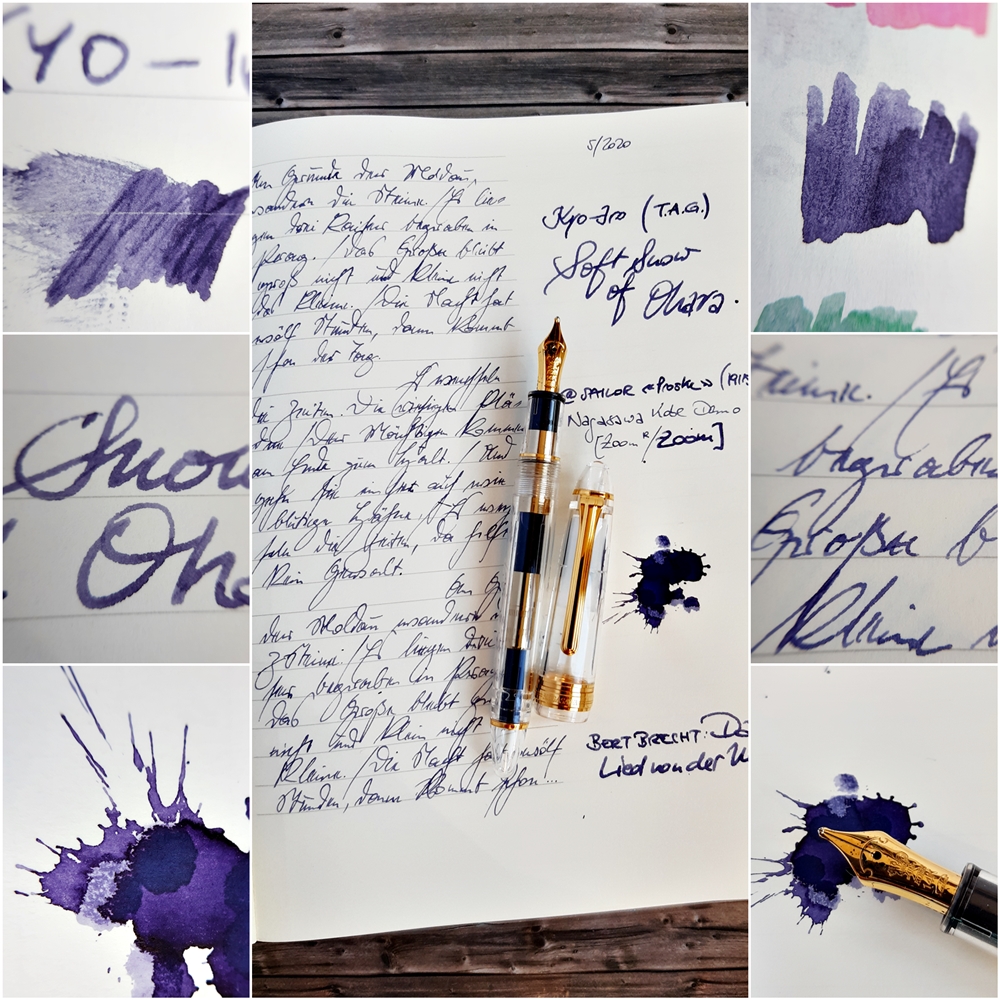 YO – I
Am Grunde der Moldau,
wandern die Steine. / Es lie
gen drei Kaiser begraben in
Prag. / Das Große bleibt
groß nicht und klein nicht
das Kleine. / Die Nacht hat
zwölf Stunden, dann kommt
schon der Tag.
Es wechseln
die Zeiten. Die riesigen Plä
/ Der Mächtigen kommen
am Ende zum Halt. / Und
gehn
blutige Hähne, / Es wech
seln die Zeiten, da hilft
kein Gewalt.
Am G
der Moldau wandern
Es liegen drei
begraben in Prag
das Große bleibt
nicht und klein nicht
Kleine. / Die Nacht hat zwölf
Stunden, dann kommt schon...
5/2020
Kyo-Iro (T.A.G.)
Soft Snow
of Ohara.
@ SAILOR (1911
Nagasawa Kobe Demo
[Zoom R/Zoom]
BERT BRECHT: Da
Lied von der M
Snow
Oha
Steine. / Es
begraben
Große b
Kleine